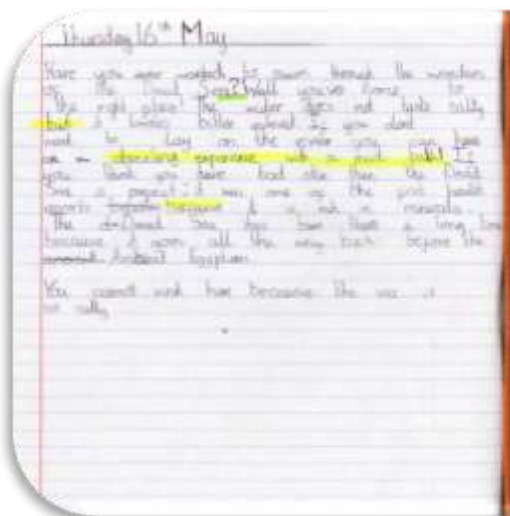 Thursday 16th May
Have you ever wanted to swim through the wonders
of the Dead Sea?! Well you've come to
the right place! The water does not taste salty
but it tastes bitter instead if you dont
want to lay on the you can have
an a experience with a mud bath! If
you think you have bad skin then the Dead
Sea is perfect; it was one of the first health
resorts because it is rich in minerals.
The Dead Sea has been there a long time
because it was all the way back before the
Ancient Egyptian
You cannot sink here because the sea is
so salty